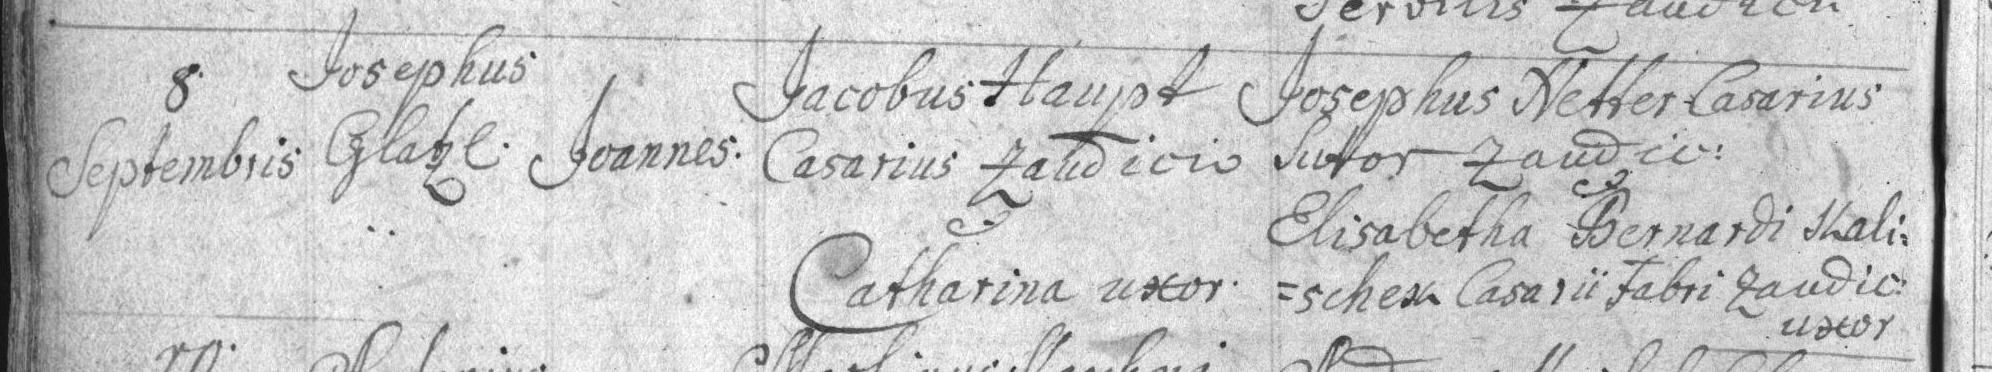 Servilis Zaudicii
8. Septembris
Josephus
Glatzl.
Joannes.
Jacobus Haupt
Casarius Zaudicio
Catharina uxor.
Josephus Netter Casarius
Sutor Zaudic:
Elisabetha Bernardi Kali=
=schek Casarii Fabri Zaudic:
uxor